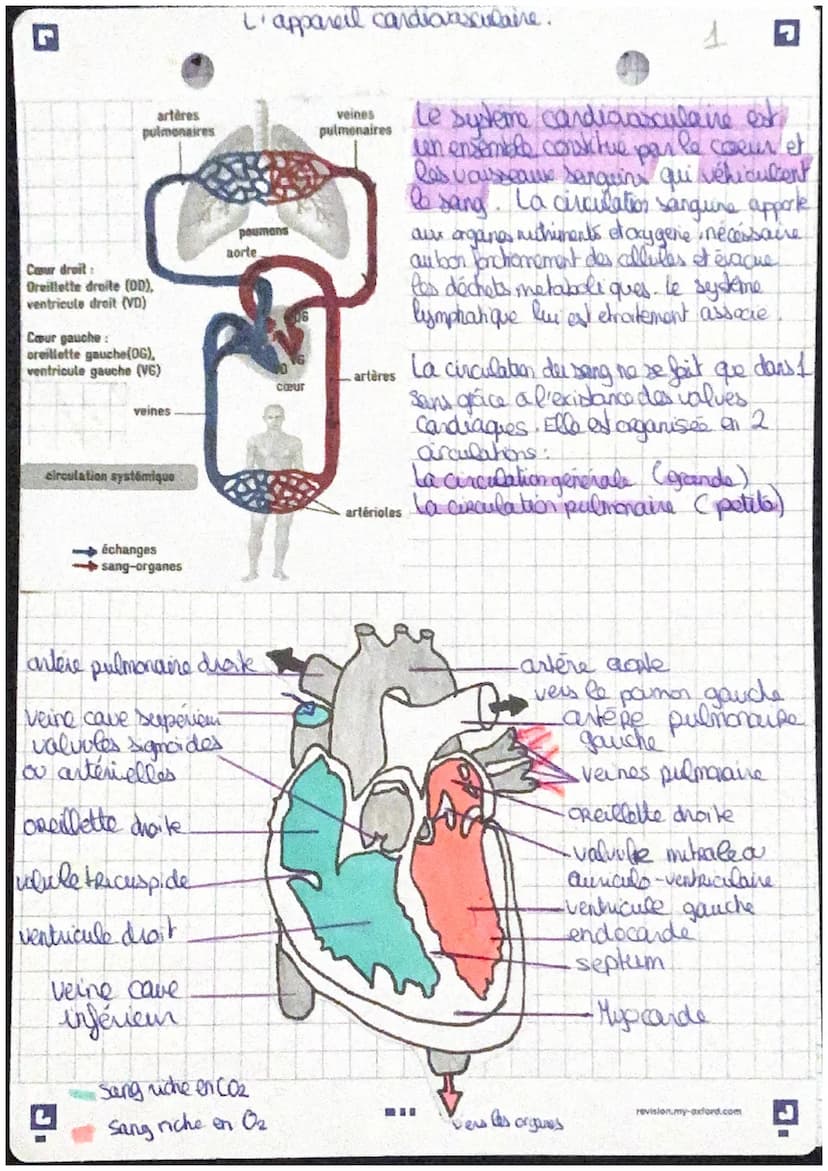 L'appareil cardiovasculaire.
1
artères
pulmonaires
veines
pulmonaires
poumons
aorte
Cœur droit :
Oreillette droite (OD),
ventricule droit (VD)
Cœur gauche :
oreillette gauche(OG),
ventricule gauche (VG)
OG
VG
VD
cœur
artères
veines
circulation systémique
artérioles
échanges
sang-organes
Le système cardiovasculaire est
un ensemble constitué par le coeur et
les vaisseaux sanguins qui véhiculent
le sang. La circulation sanguine apporte
aux organes nutriments et oxygène nécessaire
au bon fonctionement des cellules et évacue
les déchets metaboliques. le système
lymphatique lui est etroitement associe.
La circulation du sang ne se fait que dans 1
sens grâce a l'existance des valves
cardiaques. Elle est organisée en 2
circulations :
La circulation générale (grande)
La circulation pulmonaire (petite)
artère pulmonaire droite
veine cave superieur
valvules sigmoïdes
ou artérielles
oreillette droite
valvule tricuspide
ventricule droit
veine cave
inférieur
artère aorte
vers le poumon gauche
artère pulmonaire
gauche
veines pulmonaire
oreillette droite
valvule mitrale ou
auriculo-ventriculaire
ventricule gauche
endocarde
septum
Myocarde
sang riche en CO2
sang riche en O2
vers les organes
revision.my-oxford.com